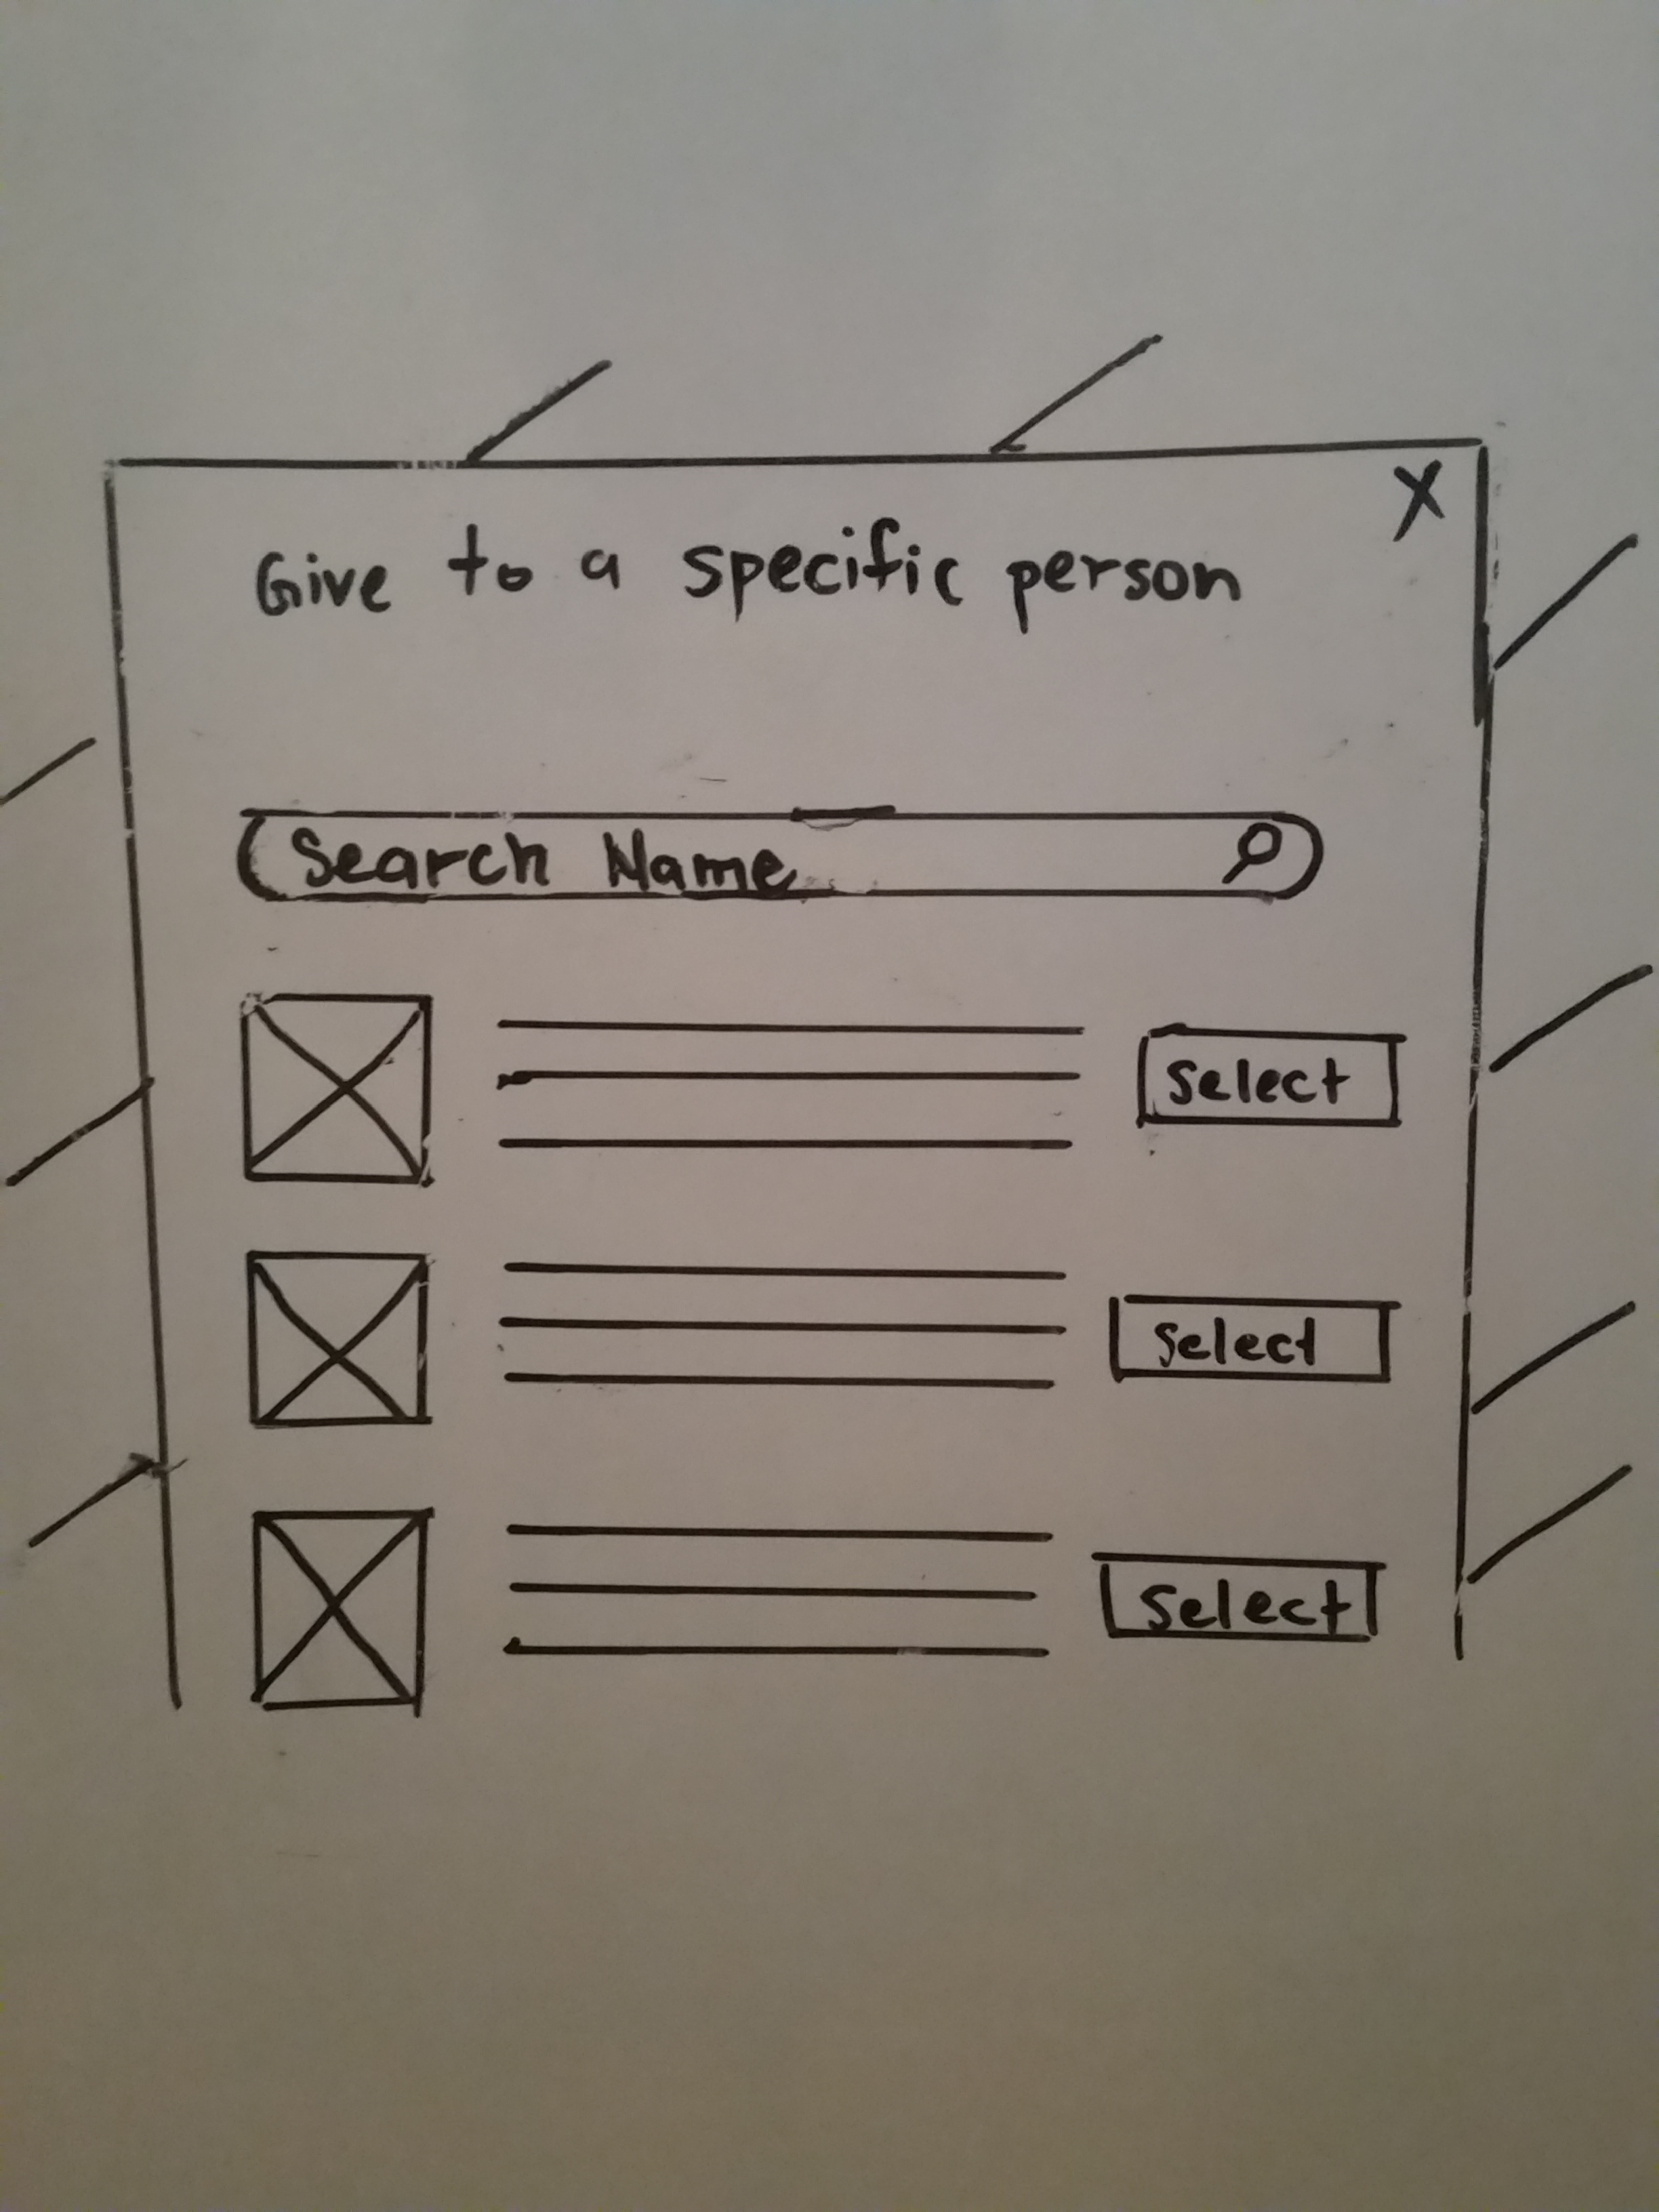 X
Give to a specific person
Search Name
Select
Select
Select